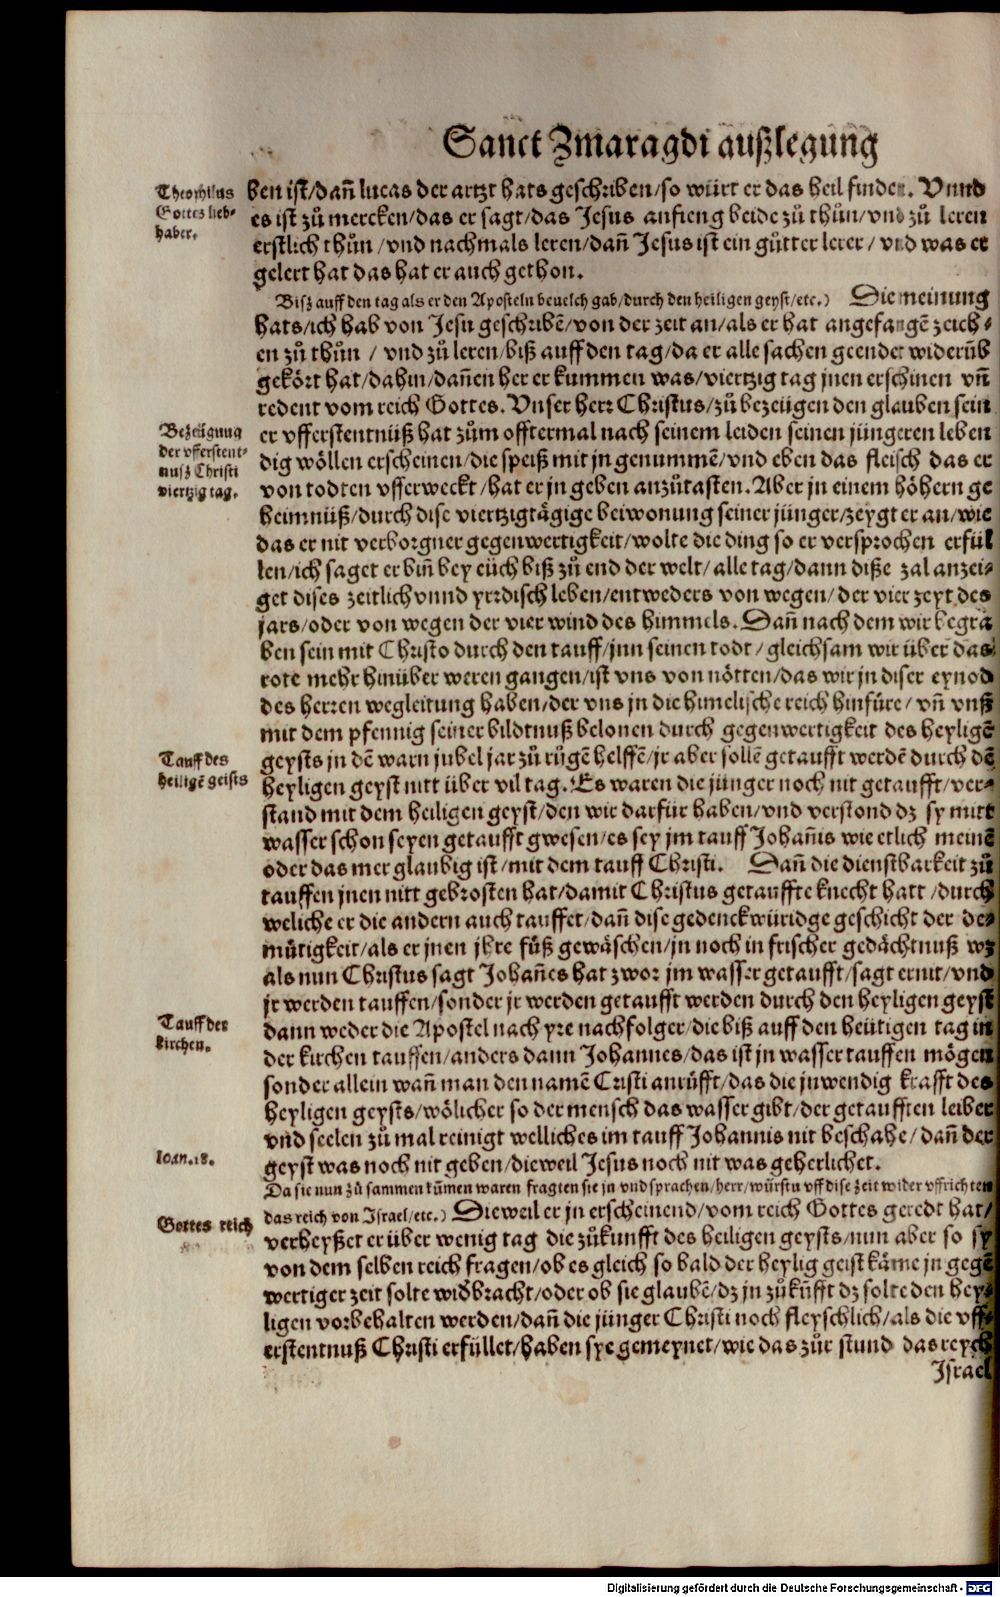 Sanct Zmaragdi außlegung
Theophilus
Gottes lieb-
haber.
ben ist/dañ lucas der artzt hats geschriben/so würt er das heil finden. Vnnd
es ist zů mercken/das er sagt/das Jesus anfieng beide zů thůn/vnd zů leren
erstlich thůn/vnd nachmals leren/dañ Jesus ist ein gůtter lerer/vnd was er
gelert hat das hat er auch gethon.
Bisz auff den tag als er den Aposteln beuelch gab/durch den heiligen geyst/etc.) Die meinung
hats/ich hab von Jesu geschribẽ/von der zeit an/als er hat angefangẽ zeich-
en zů thůn / vnd zů leren/biß auff den tag/da er alle sachen geendet widerũb
gekört hat/dahin/dañen her er kummen was/viertzig tag jnen erschinen vñ
redent vom reich Gottes. Vnser herr Christus/zů bezeügen den glauben sein
Bezeügung
der vfferstent-
nusz Christi
viertzig tag.
er vfferstentnüß hat zům offtermal nach seinem leiden seinen jüngeren leben
dig wöllen erscheinen/die speiß mit jn genummẽ/vnd eben das fleisch das er
von todten vfferweckt/hat er jn geben anzůtasten. Aber jn einem höhern ge
heimnüß/durch dise viertzigtägige beiwonung seiner jünger/zeygt er an/wie
das er nit verborgner gegenwertigkeit/wolte die ding so er versprochen erfül
len/ich saget er biñ bey eüch biß zů end der welt/alle tag/dann diße zal anzei-
get dises zeitlich vnnd yrrdisch leben/entweders von wegen/der vier zeyt des
jars/oder von wegen der vier wind des himmels. Dañ nach dem wir begra
ben sein mit Christo durch den tauff/jnn seinen todt/gleichsam wir über das
rote mehr hinüber weren gangen/ist vns von nötten/das wir jn diser eynod
des herren wegleitung haben/der vns jn die himelische reich hinfüre/vñ vnß
mit dem pfennig seiner bildtnuß belonen durch gegenwertigkeit des heyligẽ
Tauff des
heiligẽ geists
geysts jn dẽ warn jubel jar zů růgẽ helffẽ/jr aber sollẽ getaufft werdẽ durch dẽ
heyligen geyst nitt über vil tag. Es waren die jünger noch nit getaufft/ver-
stand mit dem heiligen geyst/den wir darfür haben/vnd verstond dz sy mitt
wasser schon seyen getaufft gwesen/es sey jm tauff Johañis wie etlich meinẽ
oder das mer glaubig ist/mit dem tauff Christi. Dañ die dienstbarkeit zů
tauffen jnen nitt gebrosten hat/damit Christus getauffte knecht hatt/durch
weliche er die andern auch tauffet/dañ dise gedenckwüridge geschicht der de-
mütigkeit/als er jnen jhre füß gewäschen/jn noch in frischer gedächtnuß wz
als nun Christus sagt Johañes hat zwor jm wasser getaufft/sagt er nit/vnd
jr werden tauffen/sonder jr werden getaufft werden durch den heyligen geyst
Tauff der
kirchen.
dann weder die Apostel nach yre nachfolger/die biß auff den heütigen tag in
der kirchen tauffen/anders dann Johannes/das ist jn wasser tauffen mögen
sonder allein wañ man den namẽ Cristi anrüfft/das die jnwendig krafft des
heyligen geysts/wölicher so der mensch das wasser gibt/der getaufften leiber
vnd seelen zů mal reinigt welliches im tauff Johannis nit beschahe/dañ der
Ioan.18.
geyst was noch nit geben/dieweil Jesus noch nit was geherlichet.
Da sie nun zů sammen kũmen waren fragten sie jn vnd sprachen/herr/würstu vff dise zeit wider vffrichten
Gottes reich
das reich von Israel/etc.) Dieweil er jn erscheinend/vom reich Gottes geredt hat/
verheyßet er über wenig tag die zůkunfft des heiligen geysts/nun aber so sy
von dem selben reich fragen/ob es gleich so bald der heylig geist käme jn gegẽ
wertiger zeit solte widbracht/oder ob sie glaubẽ/dz jn zůkũfft dz solte den hey-
ligen vorbehalten werden/dañ die jünger Christi noch fleyschlich/als die vff-
erstentnuß Christi erfüllet/haben sye gemeynet/wie das zůr stund das reych
Israel
Digitalisierung gefördert durch die Deutsche Forschungsgemeinschaft - DFG